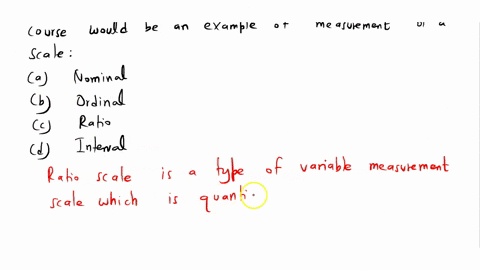 course would be an example of measurement of a
scale:
(a) Nominal
(b) Ordinal
(c) Ratio
(d) Interval
Ratio scale is a type of variable measurement
scale which is quanti